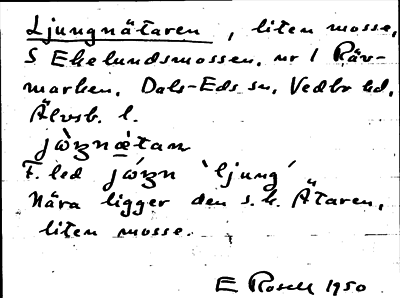 Ljungnätaren, liten mosse,
S Ekelundsmossen, nr 1 Räv-
marken, Dals-Eds sn, Vedbo hd,
Älvsb. l.
F. led 'ljung'
Nära ligger den s.k. Ätaren,
liten mosse.
E Rosell 1950